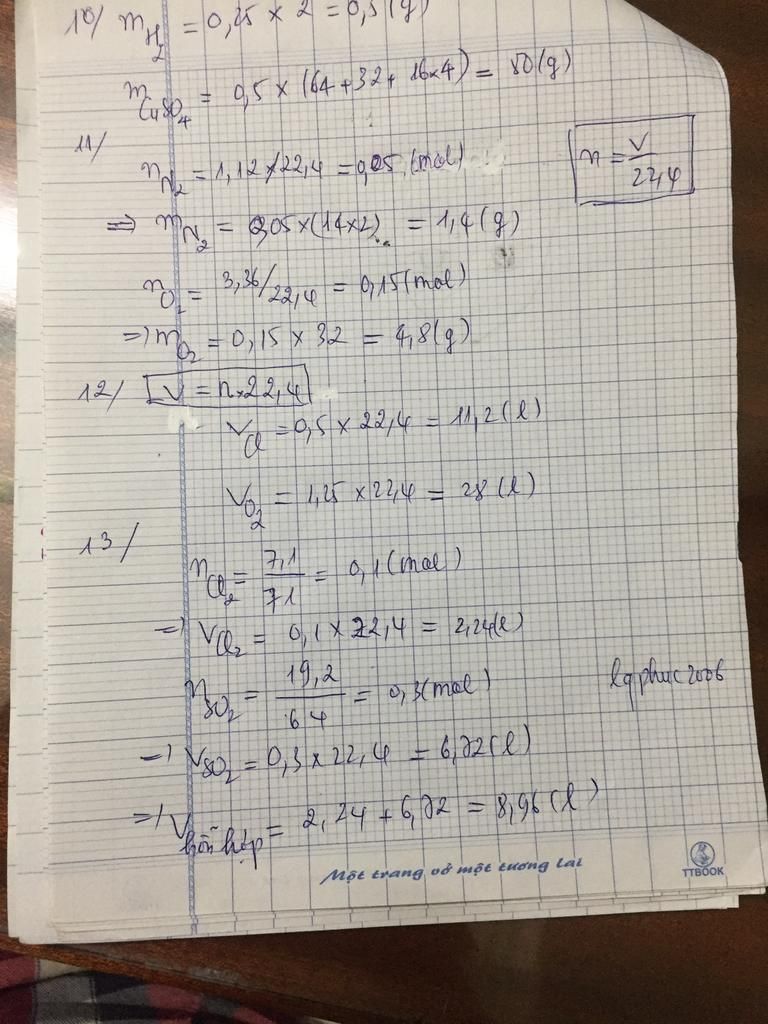 10/ m H2 = 0,25 x 2 = 0,5 (g)
m CuSO4 = 0,5 x (64 + 32 + 16x4) = 80 (g)
11/
n N2 = 1,12/22,4 = 0,05 (mol)
n = V/22,4
=> m N2 = 0,05 x (14x2) = 1,4 (g)
n O2 = 3,36/22,4 = 0,15 (mol)
=> m O2 = 0,15 x 32 = 4,8 (g)
12/ V = n x 22,4
V Cl = 0,5 x 22,4 = 11,2 (l)
V O2 = 1,25 x 22,4 = 28 (l)
13/
n Cl2 = 7,1/71 = 0,1 (mol)
=> V Cl2 = 0,1 x 22,4 = 2,24 (l)
n SO2 = 19,2/64 = 0,3 (mol)
lqphuc2006
=> V SO2 = 0,3 x 22,4 = 6,72 (l)
=> V hỗn hợp = 2,24 + 6,72 = 8,96 (l)
Một trang vở một tương lai
TTBOOK